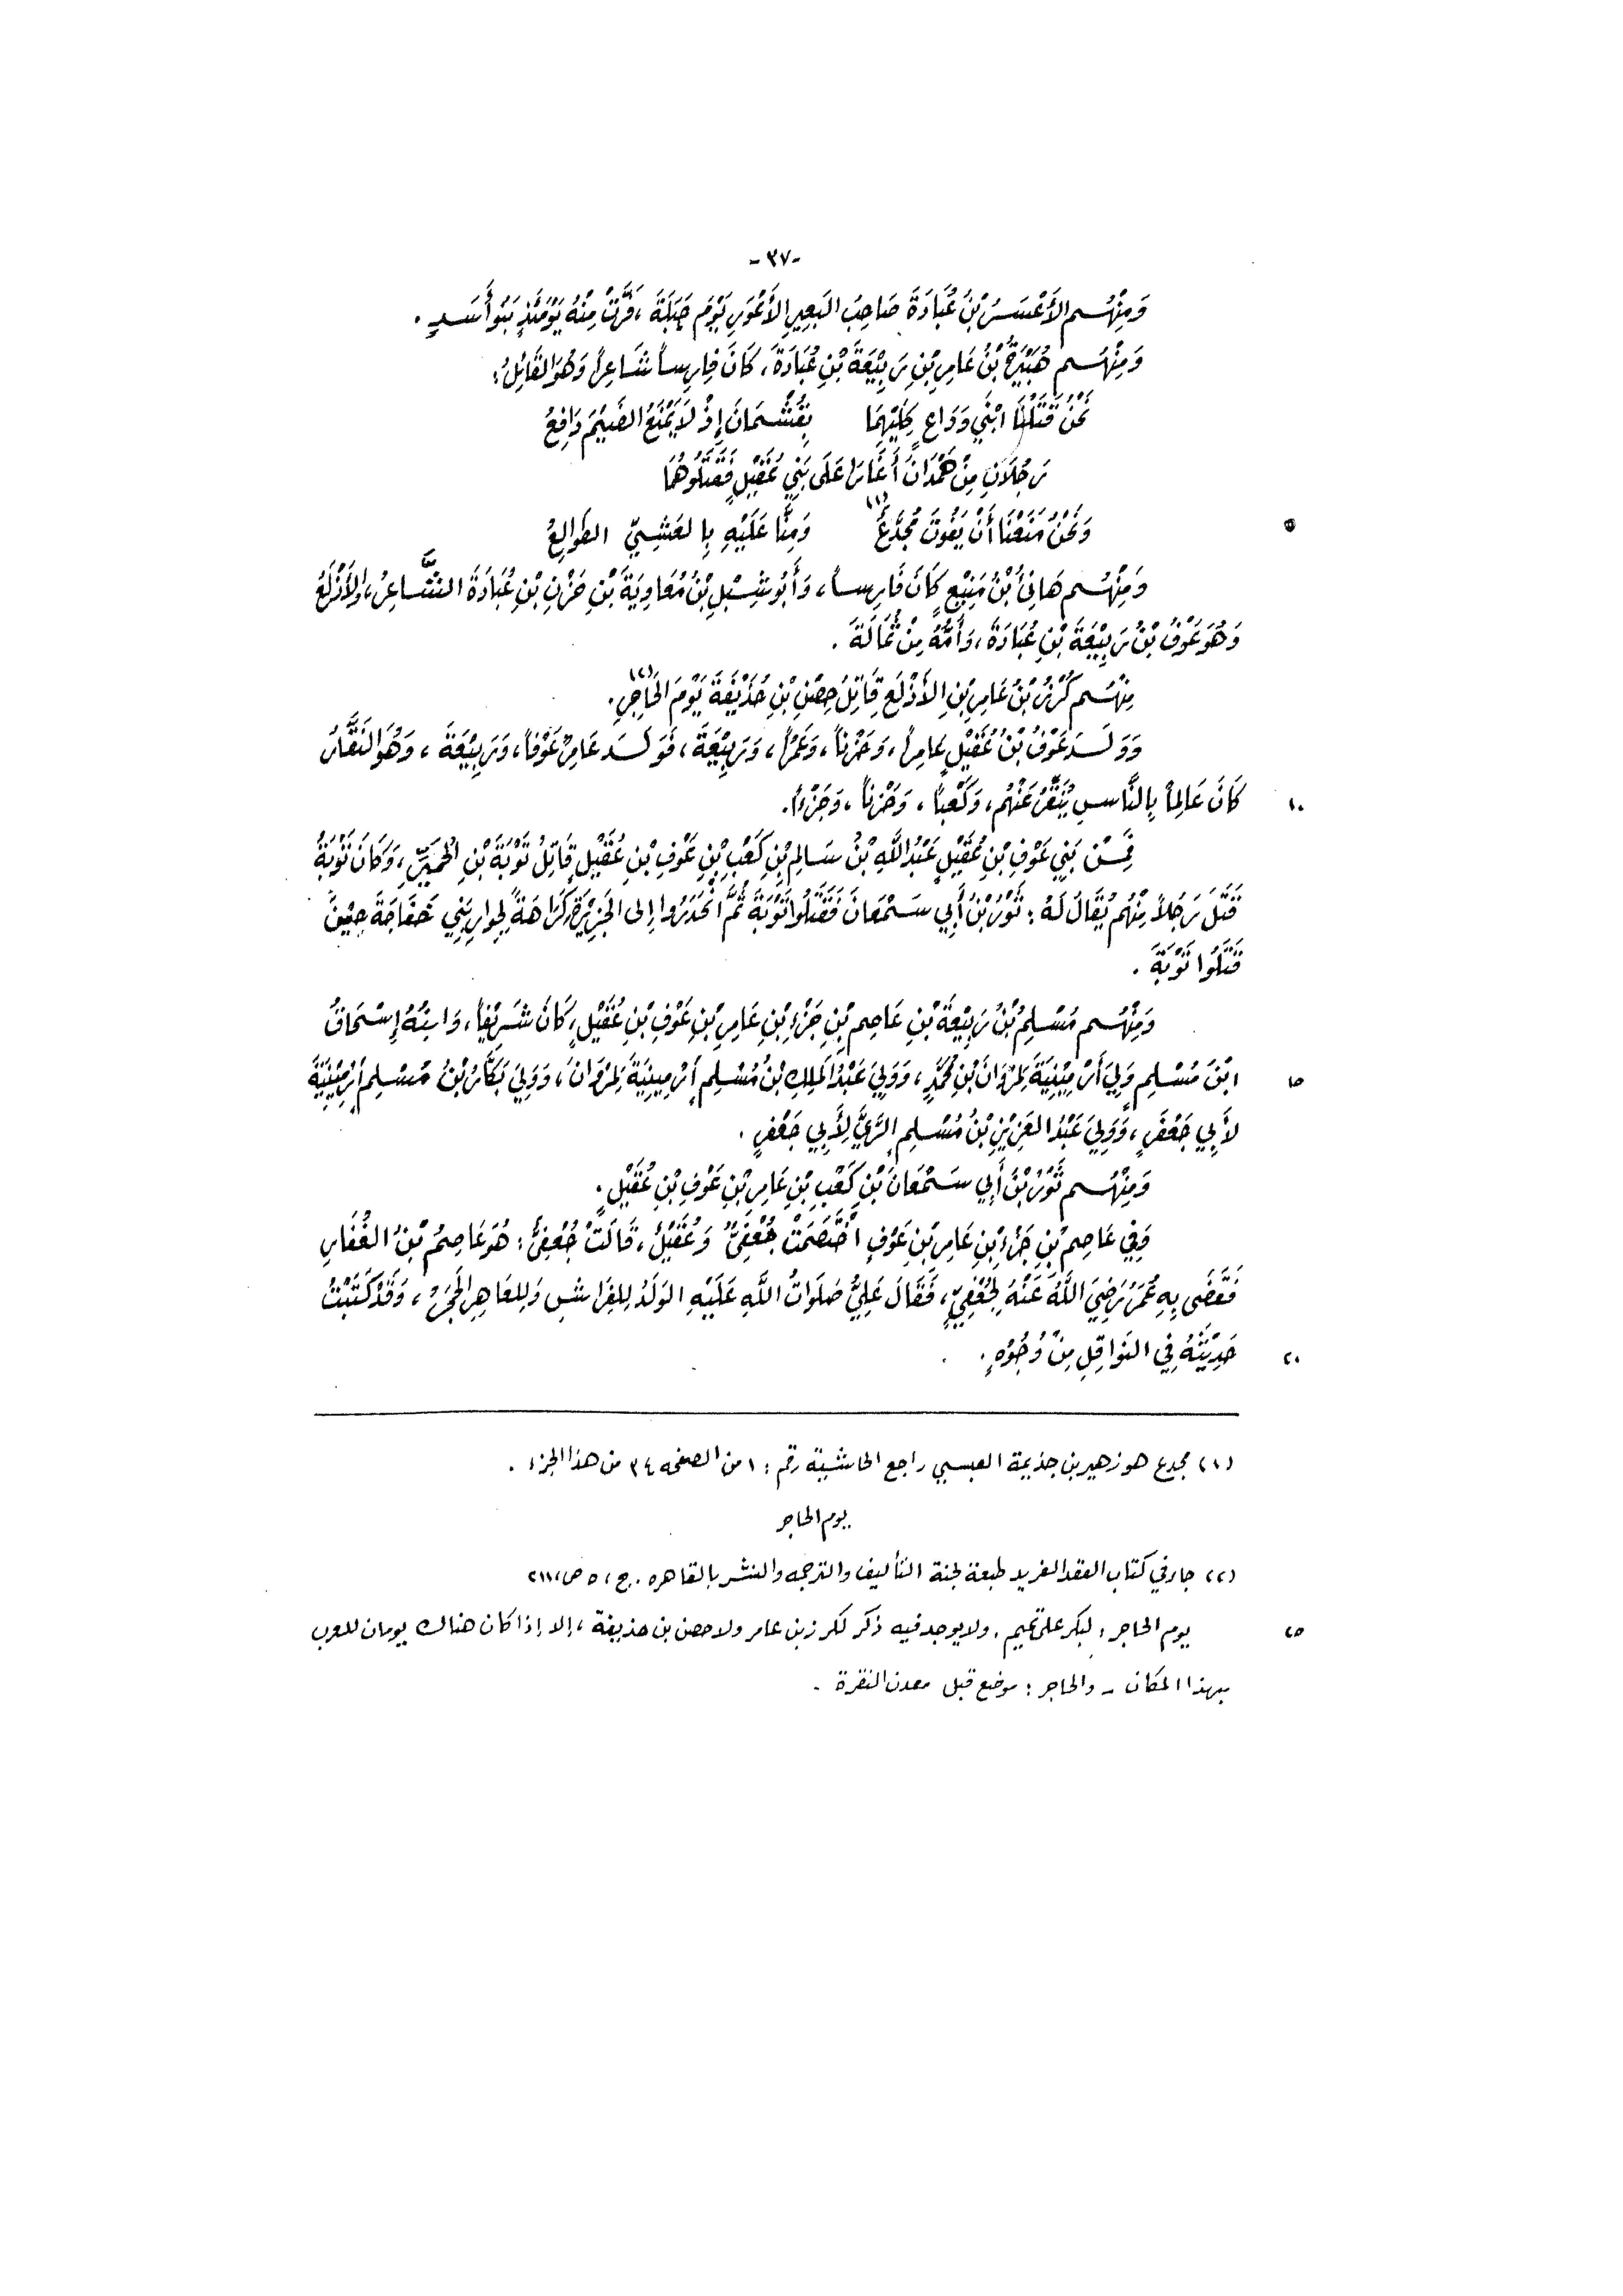 -٣٧-
وَمِنْهُم الأَعْسَرُ بْنُ عُبَادَةَ صَاحِبُ البَعِيرِ الأَعْوَرِ يَوْمَ جَبَلَةَ ، فَرَّتْ مِنْهُ يَوْمَئِذٍ بَنُو أَسَدٍ .
وَمِنْهُم هُبَيْرَةُ بْنُ عَامِرِ بْنِ رَبِيْعَةَ بْنِ عُبَادَةَ ، كَانَ فَارِساً شَاعِراً وَهُوَ القَائِلُ :
نَحْنُ قَتَلْنَا ابْنَي وَدَاعٍ كِلَيْهِمَا      بِعُسْمَانَ إِذْ لَا يَمْنَعُ الضَّيْمَ دَافِعُ
رَجُلَانِ مِنْ هَمْدَانَ أَغَارَا عَلَى بَنِي عُقَيْلٍ فَقَتَلُوهُمَا
٥ وَنَحْنُ مَنَعْنَا أَنْ يَفُوتَ مُجَدَّعُ (١)      وَمِنَّا عَلَيْهِ بِالعَشِيِّ الطَّوَالِعُ
وَمِنْهُم هَانِئُ بْنُ مَنِيْعٍ كَانَ فَارِساً ، وَأَبُو شِبْلِ بْنُ مُعَاوِيَةَ بْنِ حَزْنِ بْنِ عُبَادَةَ الشَّاعِرُ ، وَالأَذْلَعُ
وَهُوَ عَوْفُ بْنُ رَبِيْعَةَ بْنِ عُبَادَةَ ، وَأُمُّهُ مِنْ ثُمَالَةَ .
مِنْهُم كُرْزُ بْنُ عَامِرِ بْنِ الأَذْلَعِ قَاتِلُ حِصْنِ بْنِ حُذَيْفَةَ يَوْمَ الحَاجِرِ (٢) .
وَوَلَدَ عَوْفُ بْنُ عُقَيْلٍ عَامِراً ، وَحَزْناً ، وَعَمْراً ، وَرَبِيْعَةَ ، فَوَلَدَ عَامِرٌ عَوْفاً ، وَرَبِيْعَةَ ، وَهُوَ النَقَّارُ
١٠ كَانَ عَالِماً بِالنَّاسِ يُنَقِّرُ عَنْهُم ، وَكَعْباً ، وَحَزْناً ، وَجَزْءاً .
فَمِنْ بَنِي عَوْفِ بْنِ عُقَيْلٍ عَبْدُ اللَّهِ بْنُ سَالِمِ بْنِ كَعْبِ بْنِ عَوْفِ بْنِ عُقَيْلٍ قَاتِلُ تَوْبَةَ بْنِ الحُمَيِّرِ ، وَكَانَ تَوْبَةُ
قَتَلَ رَجُلاً مِنْهُم يُقَالُ لَهُ : ثَوْرُ بْنُ أَبِي سَمْعَانَ فَقَتَلُوا تَوْبَةَ ثُمَّ انْحَدَرُوا إلى الجَزِيْرَةِ كَرَاهَةً لِجِوارِ بَنِي خَفَاجَةَ حِيْنَ
قَتَلُوا تَوْبَةَ .
وَمِنْهُم مُسْلِمُ بْنُ رَبِيْعَةَ بْنِ عَاصِمِ بْنِ جَزْءِ بْنِ عَامِرِ بْنِ عَوْفِ بْنِ عُقَيْلٍ ، كَانَ شَرِيْفاً ، وَابنُهُ إِسْحَاقُ
١٥ ابْنُ مُسْلِمٍ وَلِيَ أَرْمِيْنِيَةَ لِمَرْوَانَ بْنِ مُحَمَّدٍ ، وَوَلِيَ عَبْدُ المَلِكِ بْنُ مُسْلِمٍ أَرْمِينِيَةَ لِمَرْوَانَ ، وَوَلِيَ بَكَّارُ بْنُ مُسْلِمٍ أَرْمِيْنِيَةَ
لأَبِي جَعْفَرٍ ، وَوَلِيَ عَبْدُ العَزِيْزِ بْنُ مُسْلِمٍ الرَّيَّ لِأَبِي جَعْفَرٍ .
وَمِنْهُم ثَوْرُ بْنُ أَبِي سَمْعَانَ بْنِ كَعْبِ بْنِ عَامِرِ بْنِ عَوْفِ بْنِ عُقَيْلٍ .
وَفِي عَاصِمِ بْنِ جَزْءِ بْنِ عَامِرِ بْنِ عَوْفٍ اخْتَصَمَتْ جُعْفِيُّ وَعُقَيْلُ ، قَالَتْ جُعْفِيُّ : هُوَ عَاصِمُ بْنُ الغُفَارِ
فَقَضَى بِهِ عُمَرُ رَضِيَ اللَّهُ عَنْهُ لِجُعْفِيٍّ ، فَقَالَ عَلِيٌّ صَلَوَاتُ اللَّهِ عَلَيْهِ الوَلَدُ لِلفِرَاشِ وَلِلعَاهِرِ الحَجَرُ ، وَقَدْ كَتَبْتُ
٢٠ حَدِيْثَهُ فِي النَوَاقِلِ مِنْ وُجُوْهٍ .
(١) مجدع هو زهير بن جذيمة العبسي راجع الحاشية رقم : ١ من الصفحه ٣٤ من هذا الجزء .
يوم الحاجر
(٢) جاء في كتاب العقد الفريد طبعة لجنة التأليف والترجمه والنشر بالقاهره . ج ، ٥ ص ، ٢١١
٢٥ يوم الحاجر : لبكر على تميم . ولا يوجد فيه ذكر لكرز بن عامر ولا حصن بن حذيفة ، إلا إذا كان هنالك يومان للعرب
بهذا المكان - والحاجر : موضع قبل معدن النقرة .